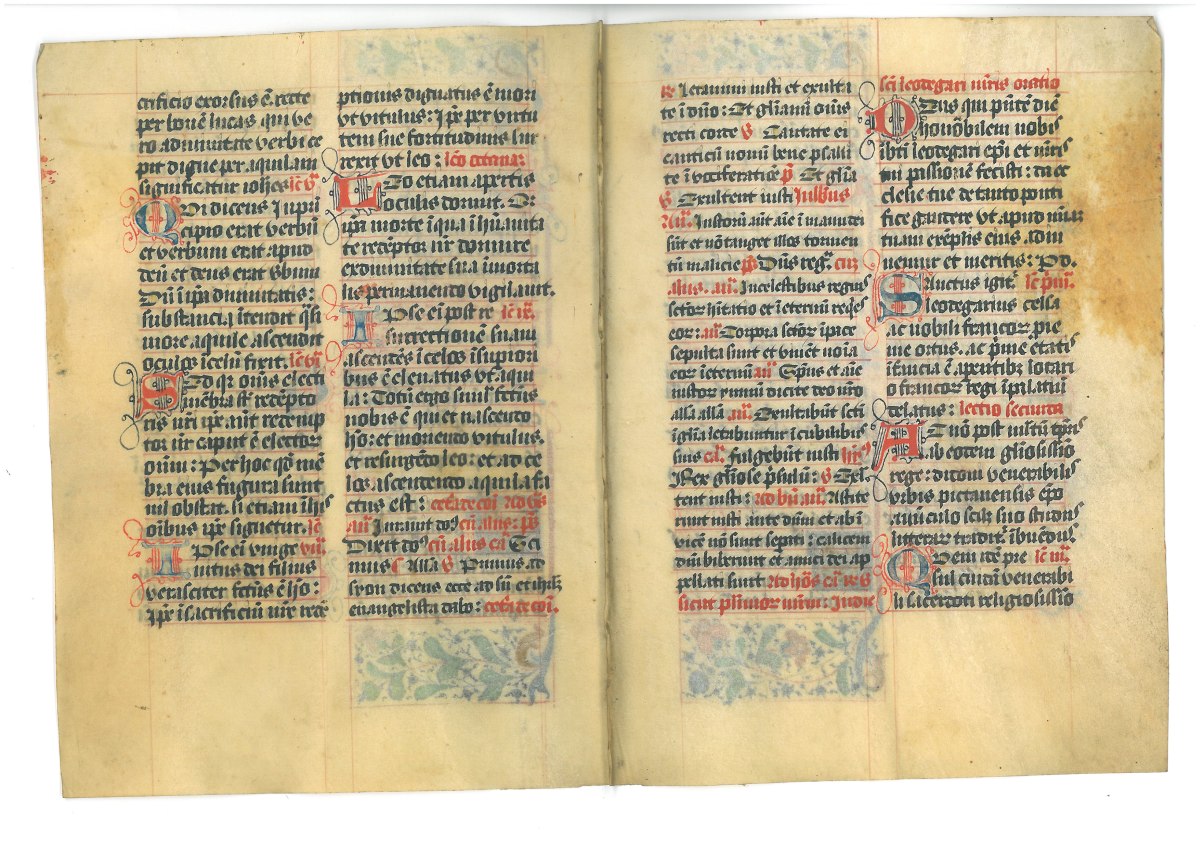 crificio exorsus ē. recte
per bouē lucas qui ve
ro a diuinitate verbi ce
pit digne per aquilam
significatur iohēs lc̄ v̄
Qui dicens In prin
cipio erat verbū
et verbum erat apud
deū et deus erat verbum
Dū ī ipā diuinitatis
substancia ītendit q̄si
more aquile ascendit
oculos ī celum fixit. lc̄ vij
Sed qr̄ om̄s electi
mēbra sūt redēpto
ris nr̄i ipē aūt redemp
tor nr̄ caput ē elector
oīum: Per hoc qd̄ mē
bra eius figurata sunt
nil obstat. si etiam ī his
oībus ipē signetur. lc̄
Ipse eī vnige viij
nitus dei filius
veraciter fctūs ē hō:
Ipē ī sacrificiū nr̄e rede
ptionis dignatus ē mori
vt vitulus: ipē per virtu
tem sue fortitudinis sur
rexit vt leo: lc̄o octaua
Leo etiam apertis
oculis dormit. Qr̄
ipā morte ī qua ī hūanita
te redēptor nr̄ dormire
ex diuinitate sua īmorta
lis permanendo vigilauit.
Ipse eī post re lc̄ ix
surrectionē suam
ascendēs ī celos ī superiori
bus ē eleuatus vt aqui
la: Totū ergo simul fctūs
nobis ē qui et nascendo
hō: et moriendo vitulus.
et resurgēdo leo: et ad ce
los ascendendo aquila fa
ctus est: cetera de cōi Ad vs̄
añ Iurauit dō cū aliis: ps̄
Dixit dō cū aliis ca Sci
mus C Alla V Primus ad
syon dicens ecce adsū et ihrl̄z
euangelista dabo: cetera de cōi.
R Letamini iusti et exulta
te ī dn̄o: Et gl̄iamī om̄s
recti corde V Cantate ei
canticū nouū bene psalli
te ī vociferatiōe p̄ Et gl̄ia
V Exultent iusti In lbus
añ. Iustorū aūt aīe ī manu dei
sūt et nō tanget illos tormen
tū malicie ps̄ Dn̄s reg̃. cū
aliis. añ. In celestibus regnis
sctōr hītatio et ī eternū reqēs
eor: añ Corpora sctōr ī pace
sepulta sunt et viuēt noīa
eor ī eternū añ Sp̄us et aīe
iustor ymnū dicite deo nr̄o
alla alla añ. Exultabūt scti
ī gl̄ia letabuntur ī cubilibus
suis ca. fulgebūt iusti
Rex gl̄iose p̄sulū: V Le
tent iusti: ad bn̄ añ. Astite
runt iusti ante dn̄m et ab ī
vicē nō sunt sepāti: calicem
dn̄i biberunt et amici dei ap
pellati sunt Ad hōs ca R V
sicut pl̄imor mr̄um: Indie
sc̄i leodegari mr̄is oratio
Deus qui p̄ntē diē
honorabilem nobis
ī bti leodegari ep̄i et mr̄is
tui passione fecisti: da ec
clesie tue de tanto ponti
fice gaudere vt apud mīam
tuam exēplis eius adiu
uemur et meritis: P d.
Sanctus igit̄ lc̄ p̄m̄.
leodegarius celsa
ac nobili francor p̄ge
nie ortus. ac p̄me etatis
ī francia ē a parētibus lotari
o francor regi ī palatiū
delatus: lectio secunda
At nō post mltū tp̄ris
ab eodem gl̄iosissīo
rege: ditoni venerabilis
vrbis pictauensis ep̄o
auūculo scilz suo studiis
litterar tradit̄. ībuēdus
Quem idē pre lc̄ iij.
sul ciuidā venerabi
li sacerdoti religiosissīo